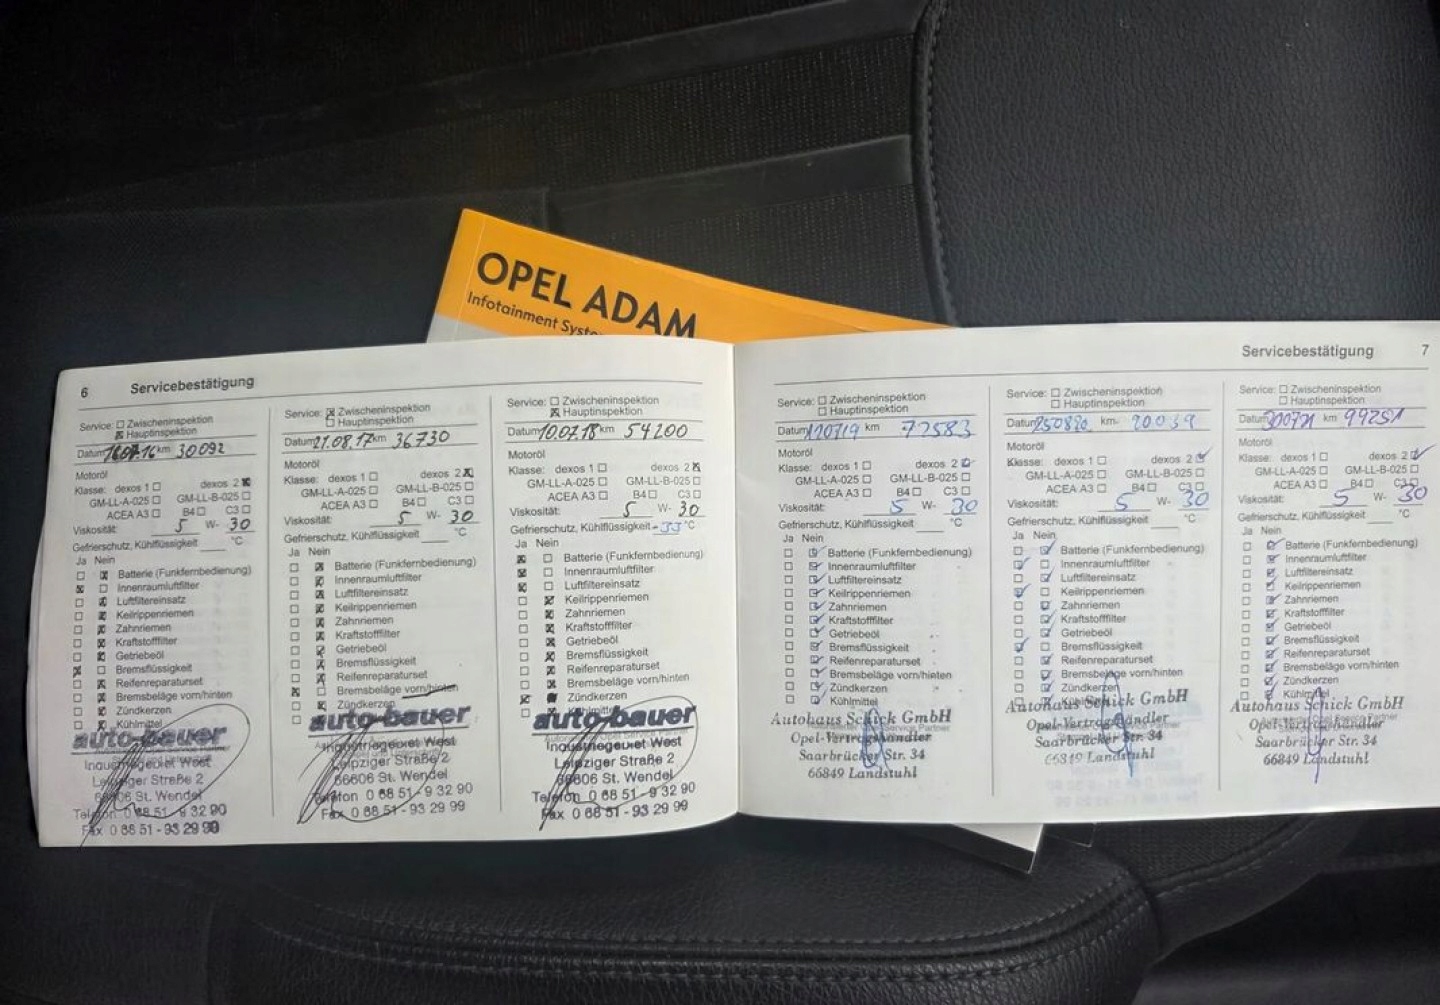 OPEL ADAM
Infotainment Syste
6 Servicebestätigung
Service: Zwischeninspektion
Hauptinspektion
Datum 16.07.16 km 30092
Motoröl
Klasse: dexos 1 dexos 2
GM-LL-A-025 GM-LL-B-025
ACEA A3 B4 C3
Viskosität: 5 W- 30
Gefrierschutz, Kühlflüssigkeit °C
Ja Nein
Batterie (Funkfernbedienung)
Innenraumluftfilter
Luftfiltereinsatz
Keilrippenriemen
Zahnriemen
Kraftstofffilter
Getriebeöl
Bremsflüssigkeit
Reifenreparaturset
Bremsbeläge vorn/hinten
Zündkerzen
Kühlmittel
auto-bauer
Industriegebiet West
Leipziger Straße 2
66606 St. Wendel
Telefon 0 68 51 - 9 32 90
Fax 0 68 51 - 93 29 99
Service: Zwischeninspektion
Hauptinspektion
Datum 21.08.17 km 36730
Motoröl
Klasse: dexos 1 dexos 2
GM-LL-A-025 GM-LL-B-025
ACEA A3 B4 C3
Viskosität: 5 W- 30
Gefrierschutz, Kühlflüssigkeit °C
Ja Nein
Batterie (Funkfernbedienung)
Innenraumluftfilter
Luftfiltereinsatz
Keilrippenriemen
Zahnriemen
Kraftstofffilter
Getriebeöl
Bremsflüssigkeit
Reifenreparaturset
Bremsbeläge vorn/hinten
Zündkerzen
auto-bauer
Industriegebiet West
Leipziger Straße 2
66606 St. Wendel
Telefon 0 68 51 - 9 32 90
Fax 0 68 51 - 93 29 99
Service: Zwischeninspektion
Hauptinspektion
Datum 10.07.18 km 54200
Motoröl
Klasse: dexos 1 dexos 2
GM-LL-A-025 GM-LL-B-025
ACEA A3 B4 C3
Viskosität: 5 W- 30
Gefrierschutz, Kühlflüssigkeit -33 °C
Ja Nein
Batterie (Funkfernbedienung)
Innenraumluftfilter
Luftfiltereinsatz
Keilrippenriemen
Zahnriemen
Kraftstofffilter
Getriebeöl
Bremsflüssigkeit
Reifenreparaturset
Bremsbeläge vorn/hinten
Zündkerzen
Kühlmittel
auto-bauer
Industriegebiet West
Leipziger Straße 2
66606 St. Wendel
Telefon 0 68 51 - 9 32 90
Fax 0 68 51 - 93 29 99
Servicebestätigung 7
Service: Zwischeninspektion
Hauptinspektion
Datum 120719 km 72583
Motoröl
Klasse: dexos 1 dexos 2
GM-LL-A-025 GM-LL-B-025
ACEA A3 B4 C3
Viskosität: 5 W- 30
Gefrierschutz, Kühlflüssigkeit °C
Ja Nein
Batterie (Funkfernbedienung)
Innenraumluftfilter
Luftfiltereinsatz
Keilrippenriemen
Zahnriemen
Kraftstofffilter
Getriebeöl
Bremsflüssigkeit
Reifenreparaturset
Bremsbeläge vorn/hinten
Zündkerzen
Kühlmittel
Autohaus Schick GmbH
Opel-Vertragshändler
Saarbrücker Str. 34
66849 Landstuhl
Service: Zwischeninspektion
Hauptinspektion
Datum 250820 km 90039
Motoröl
Klasse: dexos 1 dexos 2
GM-LL-A-025 GM-LL-B-025
ACEA A3 B4 C3
Viskosität: 5 W- 30
Gefrierschutz, Kühlflüssigkeit °C
Ja Nein
Batterie (Funkfernbedienung)
Innenraumluftfilter
Luftfiltereinsatz
Keilrippenriemen
Zahnriemen
Kraftstofffilter
Getriebeöl
Bremsflüssigkeit
Reifenreparaturset
Bremsbeläge vorn/hinten
Zündkerzen
Autohaus Schick GmbH
Opel-Vertragshändler
Saarbrücker Str. 34
66849 Landstuhl
Service: Zwischeninspektion
Hauptinspektion
Datum 300721 km 99251
Motoröl
Klasse: dexos 1 dexos 2
GM-LL-A-025 GM-LL-B-025
ACEA A3 B4 C3
Viskosität: 5 W- 30
Gefrierschutz, Kühlflüssigkeit °C
Ja Nein
Batterie (Funkfernbedienung)
Innenraumluftfilter
Luftfiltereinsatz
Keilrippenriemen
Zahnriemen
Kraftstofffilter
Getriebeöl
Bremsflüssigkeit
Reifenreparaturset
Bremsbeläge vorn/hinten
Zündkerzen
Kühlmittel
Autohaus Schick GmbH
Opel-Vertragshändler
Saarbrücker Str. 34
66849 Landstuhl